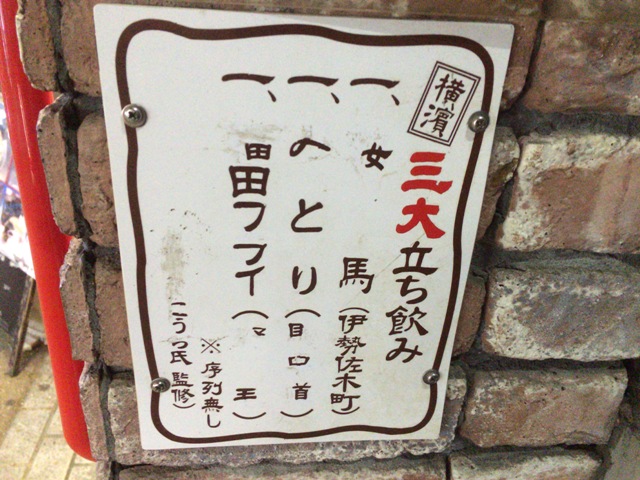 横濱 三大立ち飲み
一、女 馬(伊勢佐木町)
一、のとり(目口首)
一、田田フフイ(マ 王)
※序列無し
こうっ氏監修)